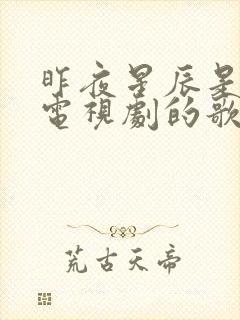 昨夜星辰是
電視劇的歌
荒古天帝